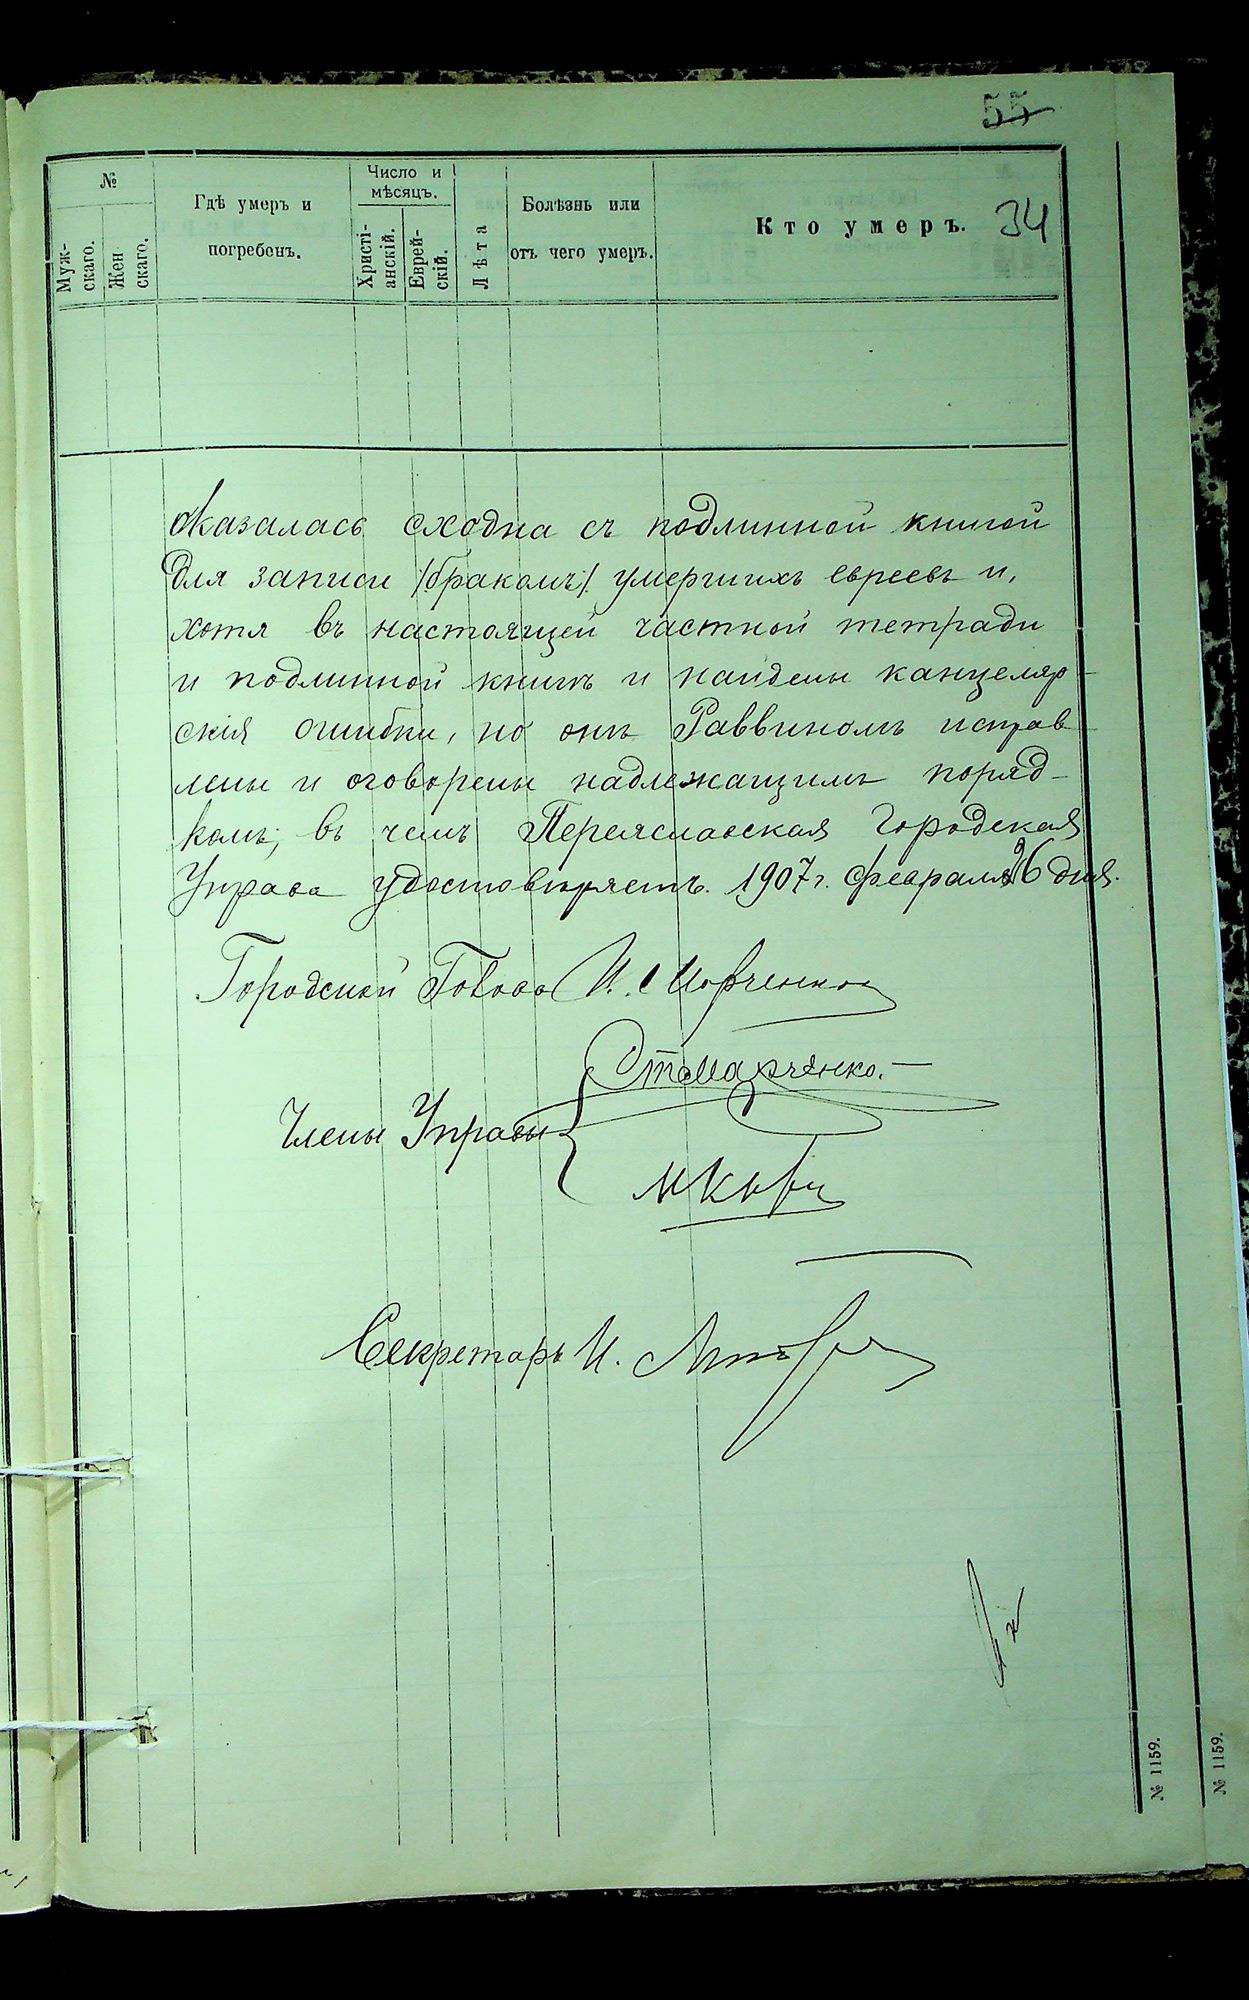 55
№
Муж-
скаго.
Жен
скаго.
Гдѣ умеръ и
погребенъ.
Число и
мѣсяцъ.
Христі-
анскій.
Еврей-
скій.
Лѣта
Болѣзнь или
отъ чего умеръ.
Кто умеръ.
34
оказалась сходна съ подлинной книгой
для записи /бракомъ/ умершихъ евреевъ и,
хотя въ настоящей частной тетради
и подлинной книгѣ и найдены канцеляр-
скія ошибки, но онѣ Раввиномъ исправ-
лены и оговорены надлежащимъ поряд-
комъ, въ чемъ Переяславская Городская
Управа удостовѣряетъ. 1907 г. февраля 26 дня.
Городской Голова И.
Члены Управы
Ст. Марченко.
Секретарь И.
№ 1159.
№ 1159.